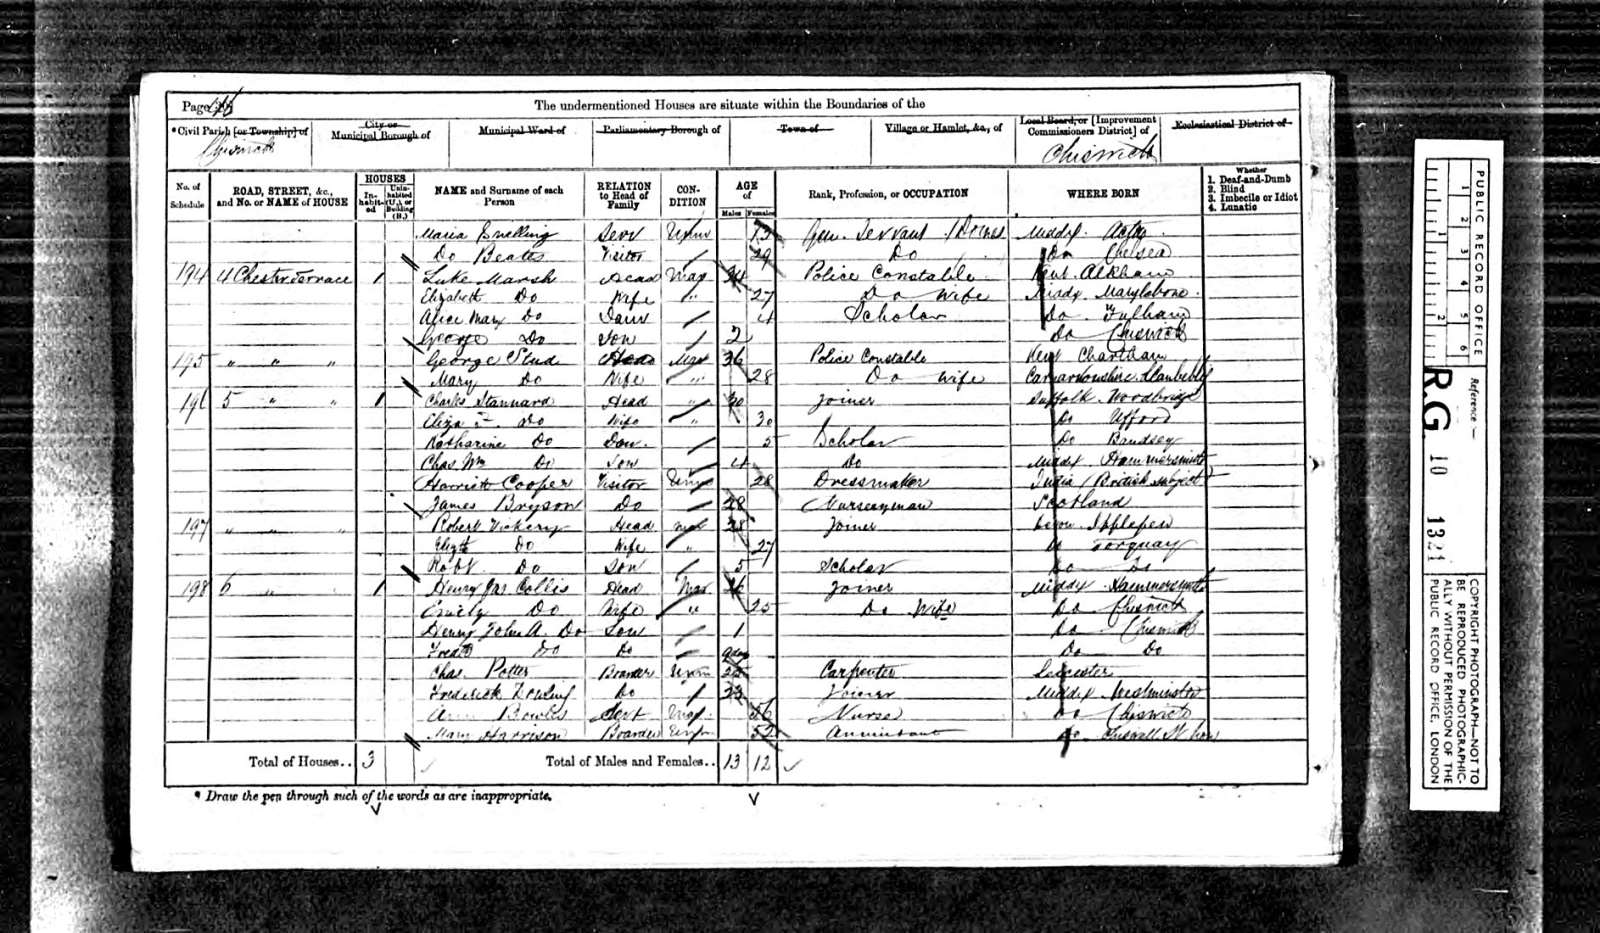 Page
The undermentioned Houses are situate within the Boundaries of the
* Civil Parish [or Township] of
City or Municipal Borough of
Municipal Ward of
Parliamentary Borough of
Town of
Village or Hamlet, &c., of
Local Board, or [Improvement Commissioners District] of
Ecclesiastical District of
Chiswick Chiswick
No. of Schedule
ROAD, STREET, &c., and No. or NAME of HOUSE
HOUSES
Inhabited
Uninhabited (U.), or Building (B.)
NAME and Surname of each Person
RELATION to Head of Family
CONDITION
AGE of
Males Females
Rank, Profession, or OCCUPATION
WHERE BORN
Whether
1. Deaf-and-Dumb
2. Blind
3. Imbecile or Idiot
4. Lunatic
Maria Snelling Serv Unm Gen. Servant Middx. Acton
Do Beates Visitor 29 Do Do Chelsea
194 4 Chester Terrace 1 Luke Marsh Head Mar 34 Police Constable Kent Alkham
Elizabeth Do Wife " 27 Do Wife Middx Marylebone
Alice Mary Do Daur 4 Scholar Do Fulham
George Do Son 2 Do Chiswick
195 " " " George Stud Head Mar 36 Police Constable Kent Chartham
Mary Do Wife " 28 Do Wife Carnarvonshire Llanberis
196 5 " " 1 Charles Stannard Head " 30 Joiner Suffolk Woodbridge
Eliza Do Wife " 30 Do Ufford
Katharine Do Daur. 5 Scholar Do Bawdsey
Chas. Wm Do Son 4 Do Middx Hammersmith
Harriett Cooper Visitor Unm 28 Dressmaker India (British subject
James Bryson Do 28 Nurseryman Scotland
197 " " " Robert Vickery Head Mar 28 Joiner Devon. Ipplepen
Elizth Do Wife " 27 Do Torquay
Robt Do Son 5 Scholar Do Do
198 6 " 1 Henry Jas Collis Head Mar 26 Joiner Middx Hammersmith
Emily Do Wife " 25 Do Wife Do Chiswick
Henry John A. Do Son 1 Do Chiswick
Do Do Do Do
Chas. Potter Boarder Unm 25 Carpenter Leicester
Frederick Do 23 Joiner Middx Westminster
Bowles Servt 56 Nurse Do Chiswick
Mary Harrison Boarder 52 Annuitant Do
Total of Houses.. 3 Total of Males and Females.. 13 12
* Draw the pen through such of the words as are inappropriate.
PUBLIC RECORD OFFICE
1 2 3 4 5 6
1 2
Reference :—
R.G. 10 1321
COPYRIGHT PHOTOGRAPH—NOT TO BE REPRODUCED PHOTOGRAPHICALLY WITHOUT PERMISSION OF THE PUBLIC RECORD OFFICE, LONDON